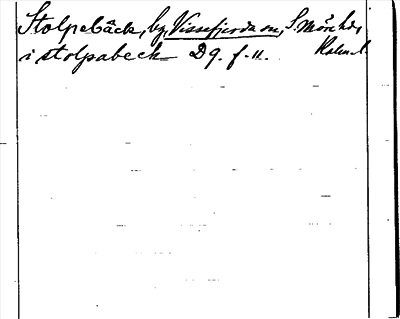 Stolpebäck, by, Vissefjerda sn, S. Möre hd,
i stolpabeck D 9. f. 11. Kalm. l.